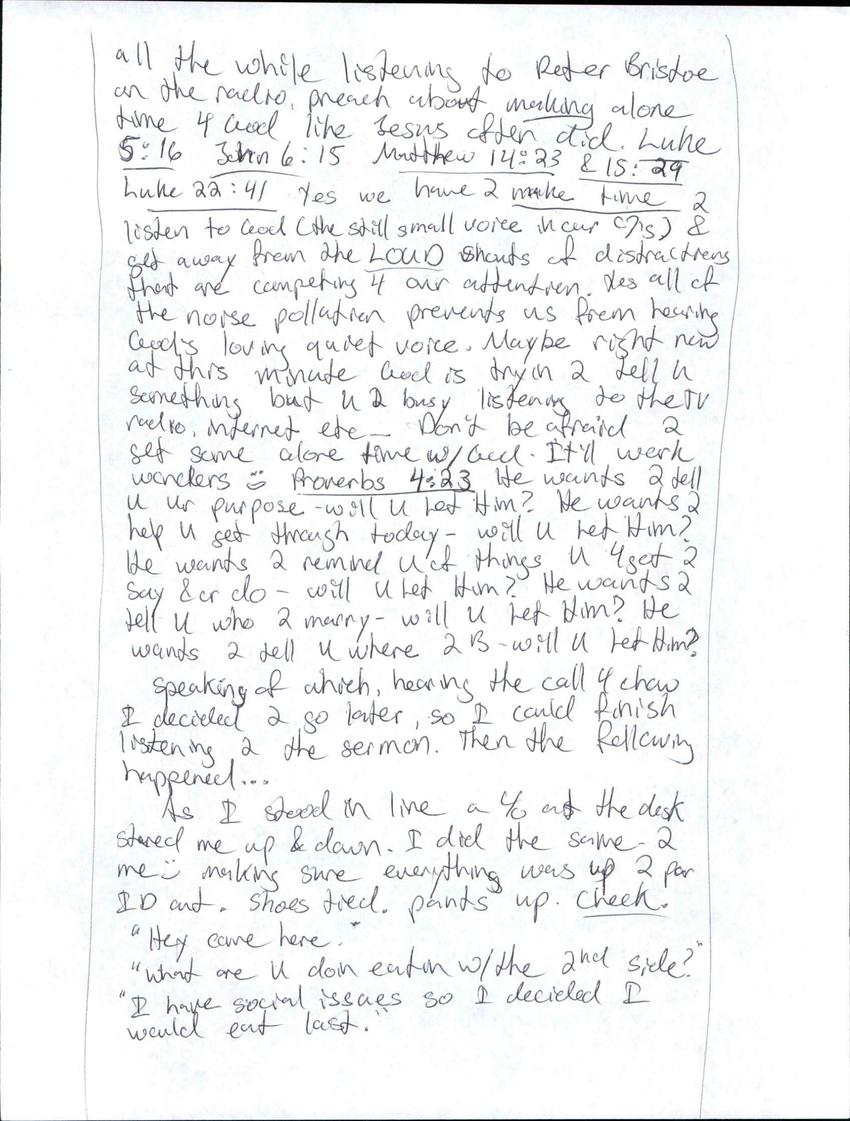 all the while listening to Peter Bristoe
on the radio, preach about making alone
time 4 God like Jesus often did. Luke
5:16 John 6:15 Matthew 14:23 & 15:29
Luke 22:41 Yes we have 2 make time 2
listen to God (the still small voice in our) &
get away from the LOUD shouts of distractions
that are competing 4 our attention. Yes all of
the noise pollution prevents us from hearing
God's loving quiet voice. Maybe right now
at this minute God is tryin 2 tell u
something but u 2 busy listening to the TV
radio, internet etc— Don't be afraid 2
get some alone time w/ God. It'll work
wonders Proverbs 4:23 He wants 2 tell
u ur purpose - will u Let Him? He wants 2
help u get through today - will u Let Him?
He wants 2 remind u of things u 4get 2
say &or do - will u Let Him? He wants 2
tell u who 2 marry - will u Let Him? He
wants 2 tell u where 2 B - will u Let Him?
Speaking of which, hearing the call 4 chow
I decided 2 go later, so I could finish
listening 2 the sermon. Then the following
happened...
As I stood in line a c/o at the desk
stared me up & down. I did the same - 2
me :) making sure everything was up 2 par
ID out. Shoes tied. pants up. Check.
"Hey come here."
"What are u doin eatin w/ the 2nd side?"
"I have social issues so I decided I
would eat last."